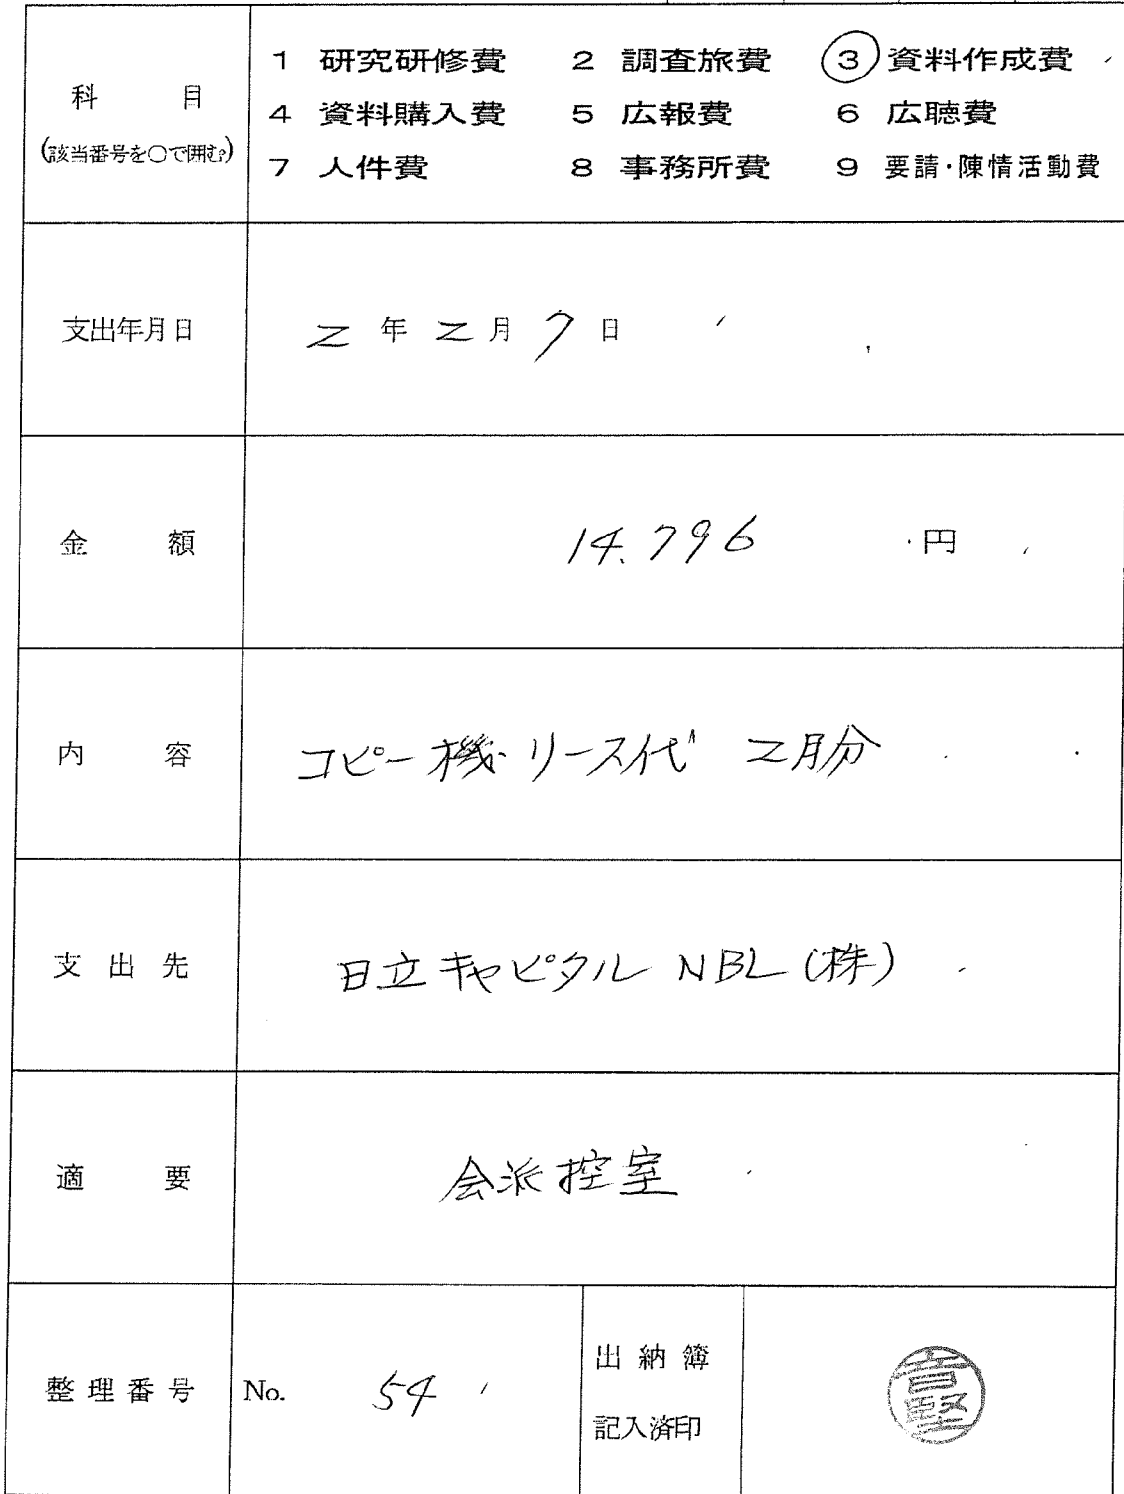 科目
(該当番号を○で囲む)
1 研究研修費 2 調査旅費 3 資料作成費
4 資料購入費 5 広報費 6 広聴費
7 人件費 8 事務所費 9 要請・陳情活動費
支出年月日 2年2月7日
金額 14.796 円
内容 コピー機リース代 2月分
支出先 日立キャピタルNBL(株)
適要 会派控室
整理番号 No. 54
出納簿
記入済印